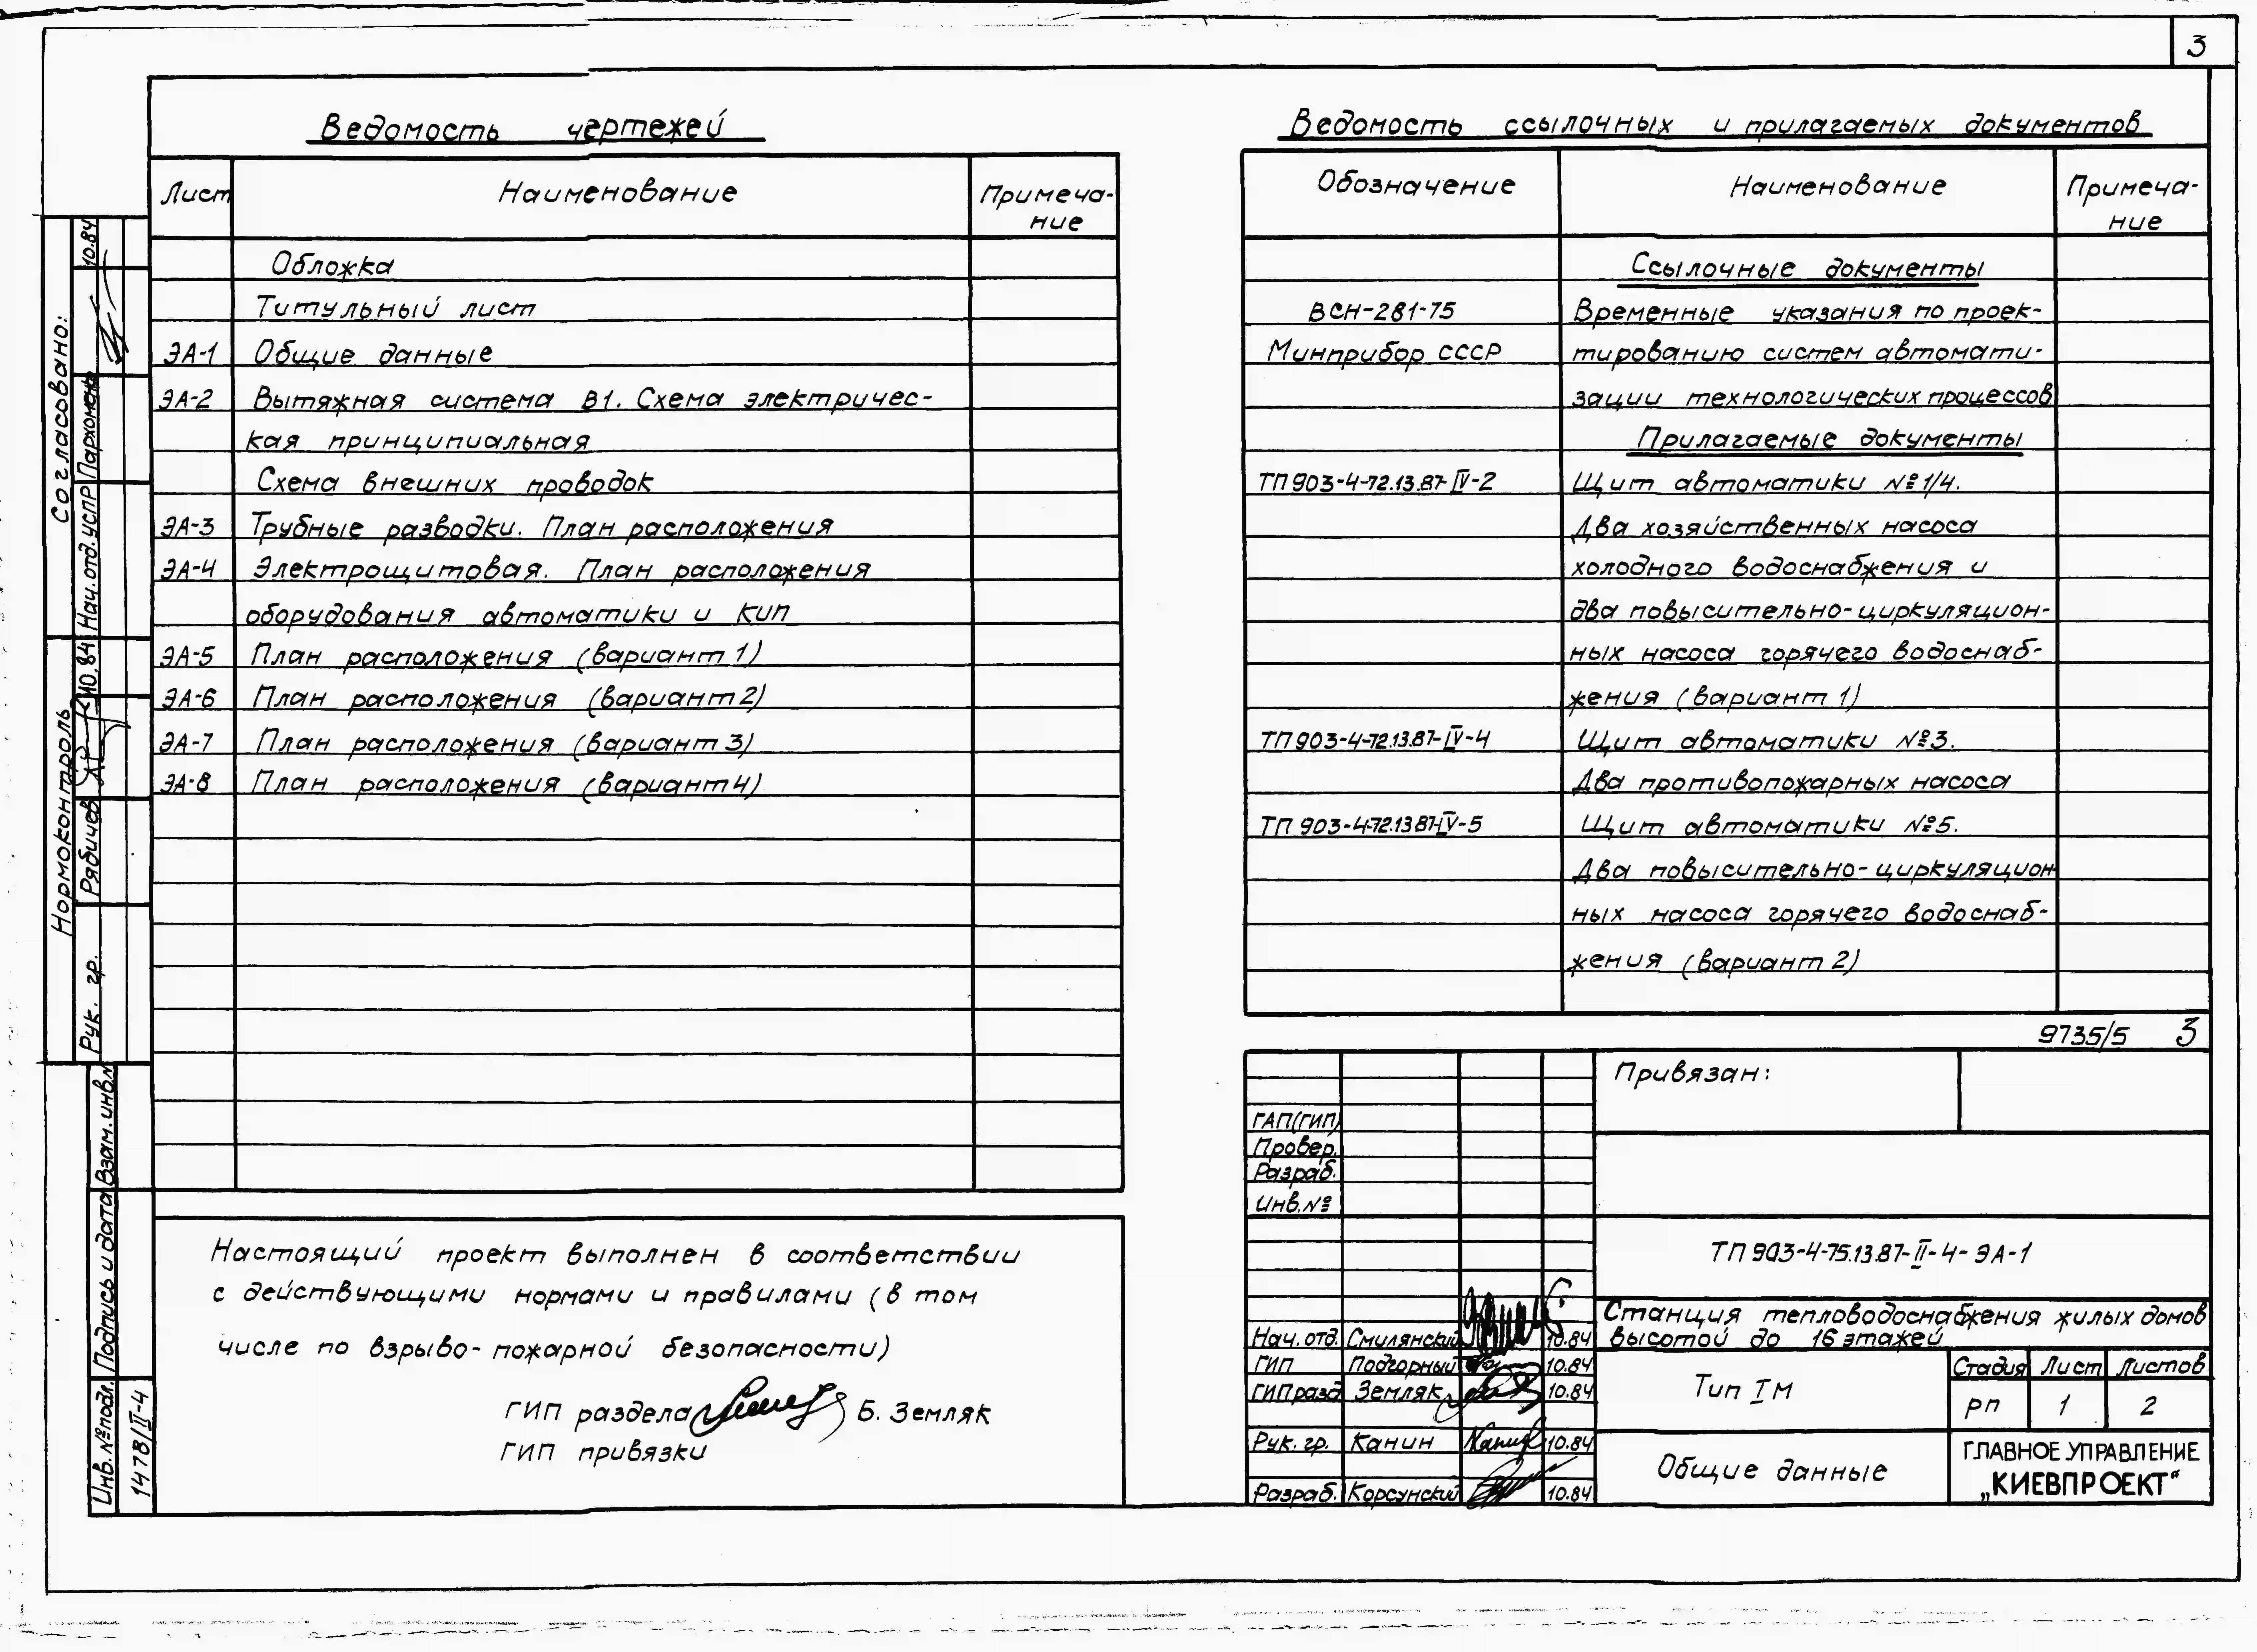 3
Ведомость чертежей
Лист Наименование Примеча-
ние
Обложка
Титульный лист
ЭА-1 Общие данные
ЭА-2 Вытяжная система В1. Схема электричес-
кая принципиальная
Схема внешних проводок
ЭА-3 Трубные разводки. План расположения
ЭА-4 Электрощитовая. План расположения
оборудования автоматики и КИП
ЭА-5 План расположения (вариант 1)
ЭА-6 План расположения (вариант 2)
ЭА-7 План расположения (вариант 3)
ЭА-8 План расположения (вариант 4)
Настоящий проект выполнен в соответствии
с действующими нормами и правилами (в том
числе по взрыво-пожарной безопасности)
ГИП раздела Б. Земляк
ГИП привязки
Ведомость ссылочных и прилагаемых документов
Обозначение Наименование Примеча-
ние
Ссылочные документы
ВСН-281-75 Временные указания по проек-
Минприбор СССР тированию систем автомати-
зации технологических процессов
Прилагаемые документы
ТП 903-4-72.13.87-IV-2 Щит автоматики №1/4.
Два хозяйственных насоса
холодного водоснабжения и
два повысительно-циркуляцион-
ных насоса горячего водоснаб-
жения (вариант 1)
ТП 903-4-72.13.87-IV-4 Щит автоматики №3.
Два противопожарных насоса
ТП 903-4-72.13.87-IV-5 Щит автоматики №5.
Два повысительно-циркуляцион
ных насоса горячего водоснаб-
жения (вариант 2)
9735/5 3
Привязан:
ГАП(ГИП)
Провер.
Разраб.
Инв.№
ТП 903-4-75.13.87-II-4-ЭА-1
Станция тепловодоснабжения жилых домов
высотой до 16 этажей
Нач. отд. Смилянский 10.84
ГИП Подгорный 10.84
ГИП разд Земляк 10.84
Рук. гр. Канин 10.84
Разраб. Корсунский 10.84
Тип I М
Стадия Лист Листов
РП 1 2
Общие данные
ГЛАВНОЕ УПРАВЛЕНИЕ
„КИЕВПРОЕКТ“
Согласовано:
Нач. отд. УСПР Пархомень 10.84
Нормоконтроль
Рук. гр. Рябичев 10.84
Взам. инв.№
Подпись и дата
Инв. № подл.
1478/II-4